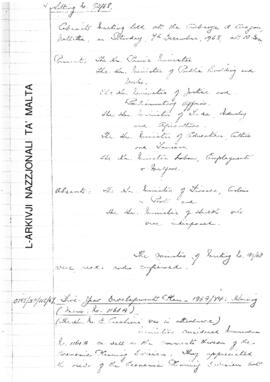 Sitting No. 50/68.
Cabinet Meeting held at the Auberge d'Aragon
Valletta, on Saturday 7th December, 1968, at
Present: The Hon. Prime Minister
The Hon. Minister of Public Building and
Works.
The Hon. Minister of Justice and
Parliamentary Affairs.
The Hon. Minister of Trade, Industry
and Agriculture
The Hon. Minister of Education, Culture
and Tourism
The Hon. Minister Labour, Employment
& Welfare.
Absent: The Hon. Minister of Finance, Customs
Port and
The Hon. Minister of Health who
were indisposed.
The minutes of Meeting No.
were read and confirmed.
Five-Year Development Plan - 1969/74: Housing
(Memo: No. 1161A)
(The Hon. Mr. was in attendance)
Ministers considered Memorandum
No. 1161A as well as the comments thereon of the
Economic Planning Division. They appreciated
the views of the Economic Planning Division but
L-ARKIVJI NAZZJONALI TA' MALTA